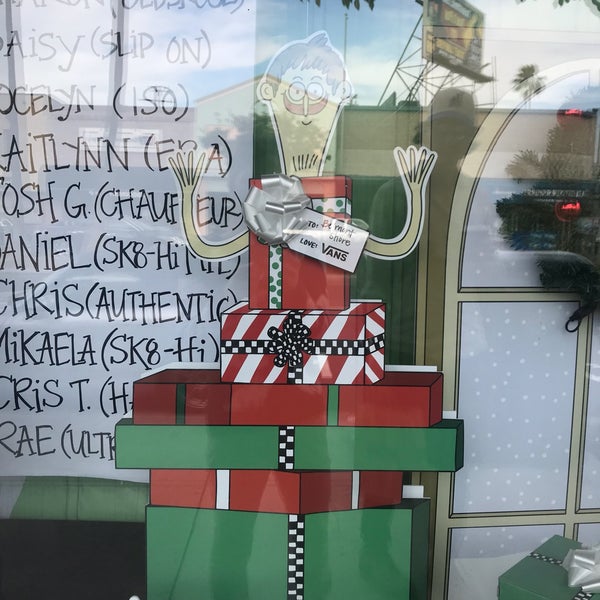 DAISY (SLIP ON)
JOCELYN (ISO)
KAITLYNN (ERA)
JOSH G. (CHAUFFEUR)
DANIEL (SK8-Hi MTE)
CHRIS (AUTHENTIC)
MIKAELA (SK8-Hi)
CRIS T. (HA
RAE (ULTR
TO: Bernard
Store
LOVE: VANS